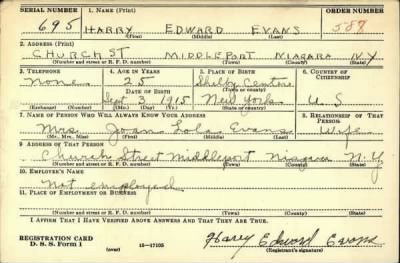 SERIAL NUMBER 1. NAME (Print) ORDER NUMBER
695 HARRY EDWARD EVANS 587
(First) (Middle) (Last)
2. ADDRESS (Print)
CHURCH ST MIDDLEPORT NIAGARA N.Y
(Number and street or R. F. D. number) (Town) (County) (State)
3. TELEPHONE 4. AGE IN YEARS 5. PLACE OF BIRTH 6. COUNTRY OF CITIZENSHIP
None 25 Shelby Centre
DATE OF BIRTH (Town or county)
Sept 3 1915 New York U S
(Exchange) (Number) (Mo.) (Day) (Yr.) (State or country)
7. NAME OF PERSON WHO WILL ALWAYS KNOW YOUR ADDRESS 8. RELATIONSHIP OF THAT PERSON
Mrs. Joan Lola Evans Wife
(Mr., Mrs., Miss) (First) (Middle) (Last)
9. ADDRESS OF THAT PERSON
Church Street Middleport Niagara N.Y
(Number and street or R. F. D. number) (Town) (County) (State)
10. EMPLOYER'S NAME
Not employed
11. PLACE OF EMPLOYMENT OR BUSINESS
(Number and street or R. F. D. number) (Town) (County) (State)
I AFFIRM THAT I HAVE VERIFIED ABOVE ANSWERS AND THAT THEY ARE TRUE.
REGISTRATION CARD
D. S. S. Form 1 (over) 16—17105 Harry Edward Evans
(Registrant's signature)